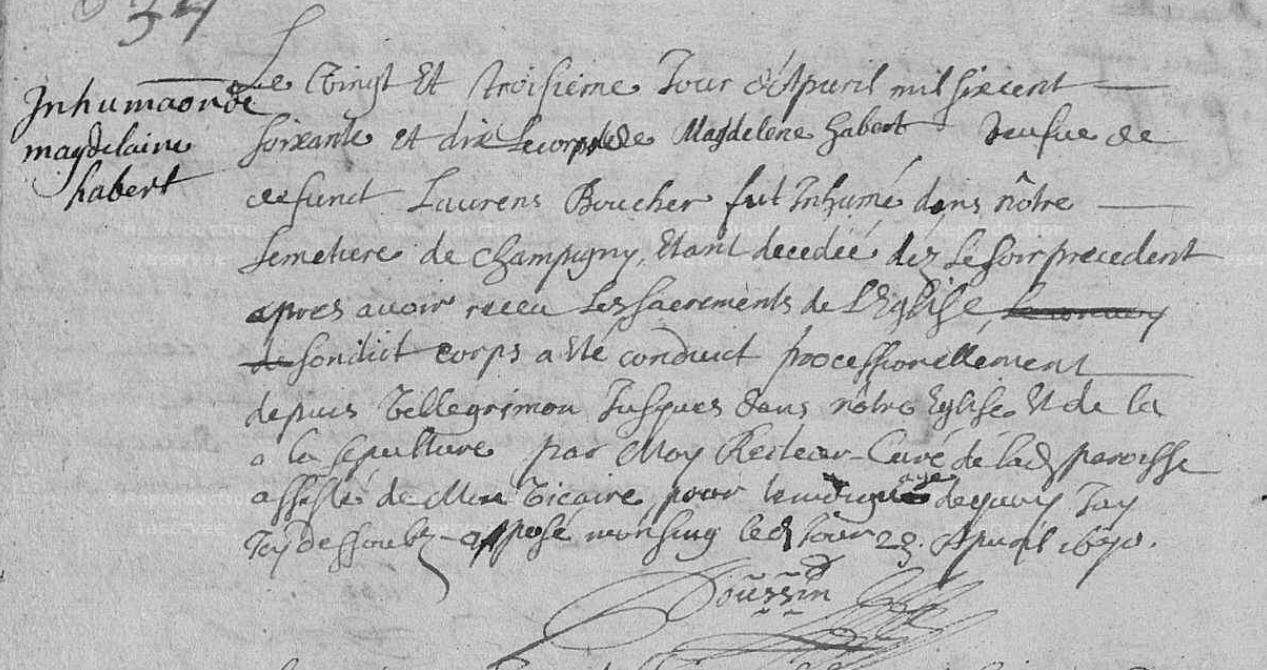 34
Inhumaon de
magdelaine
habert
Le Vingt Et troisieme Jour d'Apuril mil sixcent
soixante et dix Le corps de Magdelene habert veufue de
defunct Laurens Boucher fut Inhumé dans nôtre
Semetiere de Champigny, Etant decedée dez Le soir precedent
apres avoir receu Les sacrements de L'Eglise, Le convoy
de sondict corps a Eté conduict processionellement
depuis Tellegrimon Jusques dans nôtre Eglise Et de la
a la sepulture par Moy Recteur-Curé de lad paroisse
assisté de Mon Vicaire, pour temoignage dequoy Jay
Jay dessoubz apposé mon sing led Jour 23. Apuril 1670.
Poussin